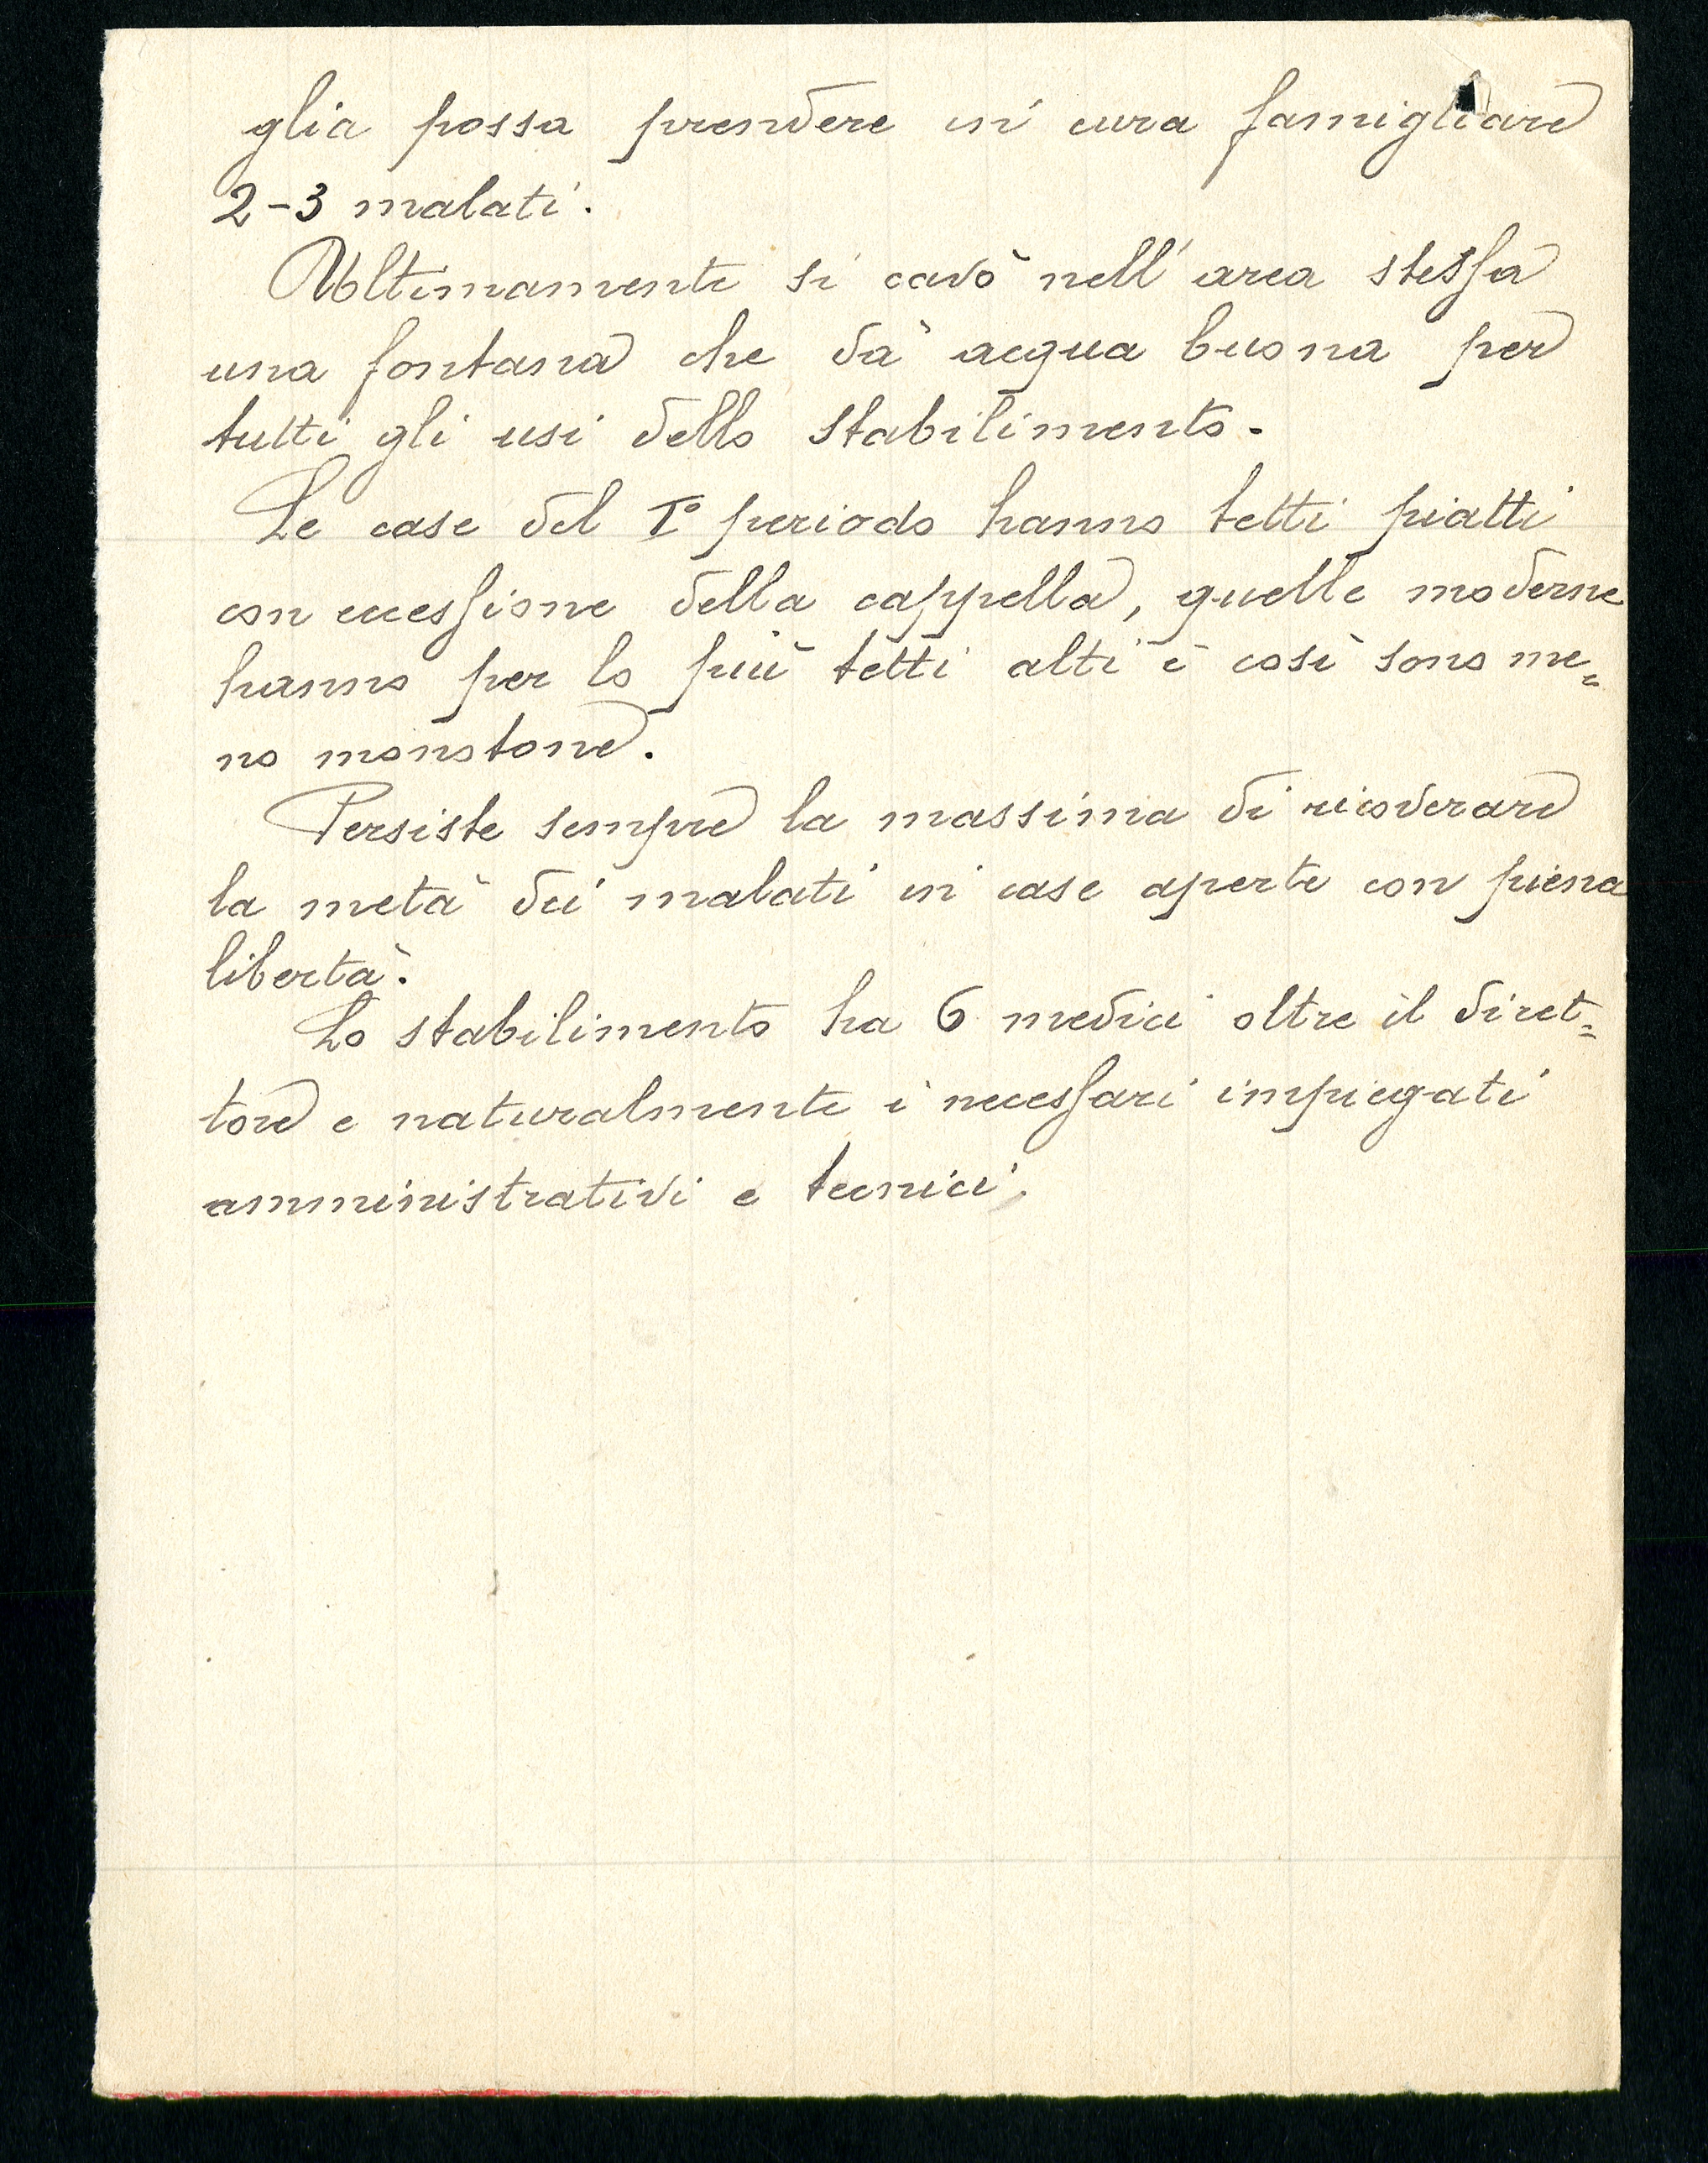 glia possa prendere in cura famigliare
2-3 malati.
Ultimamente si cavò nell'area stessa
una fontana che dà acqua buona per
tutti gli usi dello stabilimento.
Le case del I° periodo hanno tetti piatti
con eccessione della cappella, quelle moderne
hanno per lo più tetti alti e così sono me=
no monotone.
Persiste sempre la massima di ricoverare
la metà dei malati in case aperte con piena
libertà.
Lo stabilimento ha 6 medici oltre il diret=
tore e naturalmente i necessari impiegati
amministrativi e tecnici.